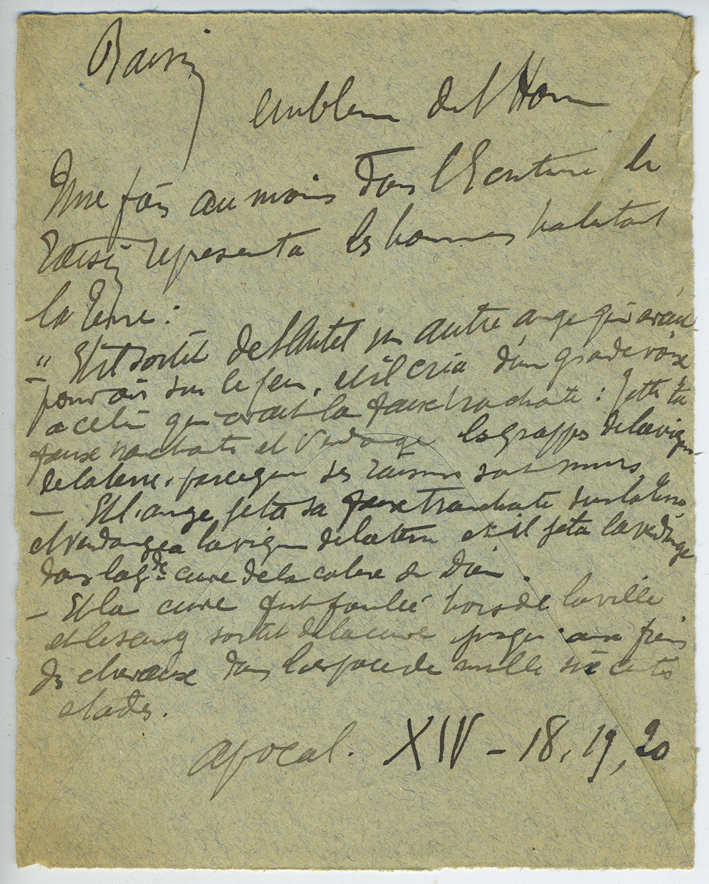 Raisin
emblème de l'Homme
Une fois au moins dans l'Ecriture le
raisin représenta les hommes habitant
la Terre :
"– Et il sortit de l'Autel un autre ange qui avait
pouvoir sur le feu, et il cria d'une grande voix
a celui qui avait la faux tranchante : Jette ta
faux tranchante et vendange les grappes de la vigne
de la terre, parce que ses raisins sont murs
– Et l'ange jeta sa faux tranchante sur la terre
et vendangea la vigne de la terre et il jeta la vendange
dans la gde cuve de la colère de Dieu.
– Et la cuve fut foulée hors de la ville
et le sang sortit de la cuve jusqu'aux freins
des chevaux dans l'espace de mille six cents
stades.
Apocal. XIV – 18, 19, 20